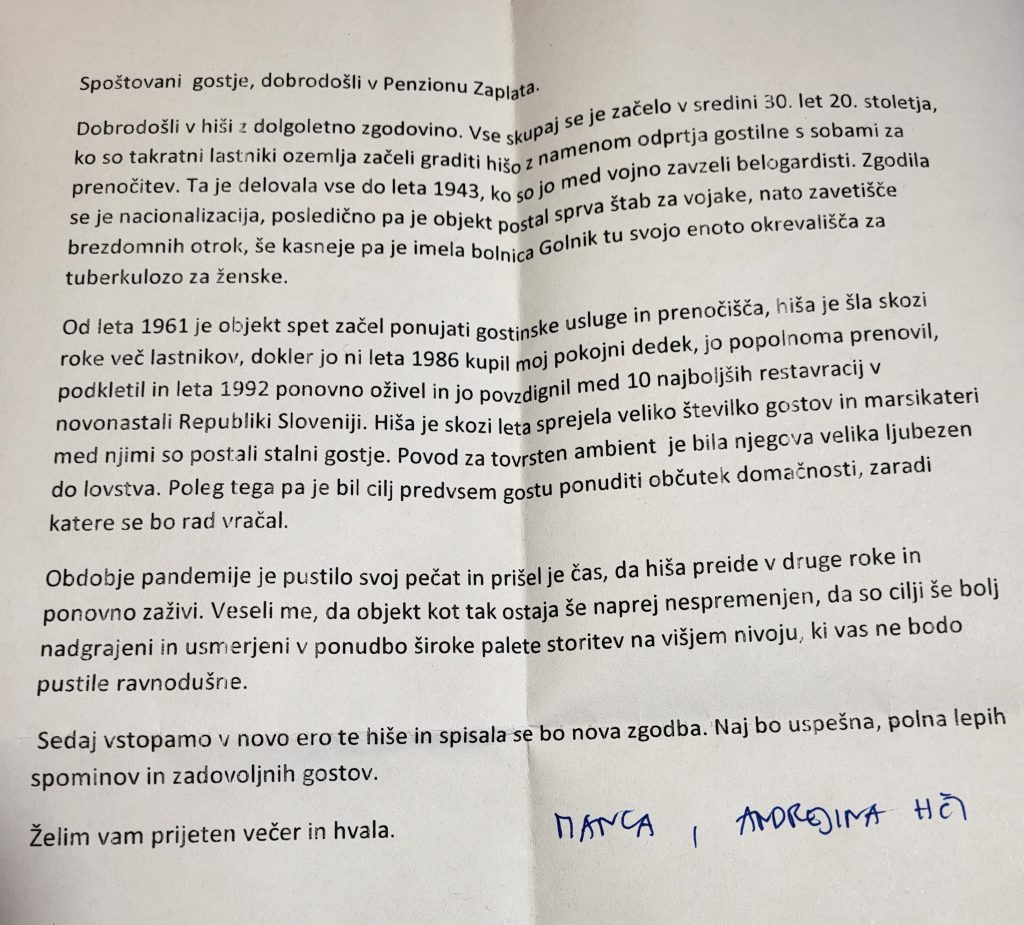 Spoštovani gostje, dobrodošli v Penzionu Zaplata.
Dobrodošli v hiši z dolgoletno zgodovino. Vse skupaj se je začelo v sredini 30. let 20. stoletja,
ko so takratni lastniki ozemlja začeli graditi hišo z namenom odprtja gostilne s sobami za
prenočitev. Ta je delovala vse do leta 1943, ko so jo med vojno zavzeli belogardisti. Zgodila
se je nacionalizacija, posledično pa je objekt postal sprva štab za vojake, nato zavetišče
brezdomnih otrok, še kasneje pa je imela bolnica Golnik tu svojo enoto okrevališča za
tuberkulozo za ženske.
Od leta 1961 je objekt spet začel ponujati gostinske usluge in prenočišča, hiša je šla skozi
roke več lastnikov, dokler jo ni leta 1986 kupil moj pokojni dedek, jo popolnoma prenovil,
podkletil in leta 1992 ponovno oživel in jo povzdignil med 10 najboljših restavracij v
novonastali Republiki Sloveniji. Hiša je skozi leta sprejela veliko številko gostov in marsikateri
med njimi so postali stalni gostje. Povod za tovrsten ambient je bila njegova velika ljubezen
do lovstva. Poleg tega pa je bil cilj predvsem gostu ponuditi občutek domačnosti, zaradi
katere se bo rad vračal.
Obdobje pandemije je pustilo svoj pečat in prišel je čas, da hiša preide v druge roke in
ponovno zaživi. Veseli me, da objekt kot tak ostaja še naprej nespremenjen, da so cilji še bolj
nadgrajeni in usmerjeni v ponudbo široke palete storitev na višjem nivoju, ki vas ne bodo
pustile ravnodušne.
Sedaj vstopamo v novo ero te hiše in spisala se bo nova zgodba. Naj bo uspešna, polna lepih
spominov in zadovoljnih gostov.
Želim vam prijeten večer in hvala. MANCA, ANDREJINA HČI